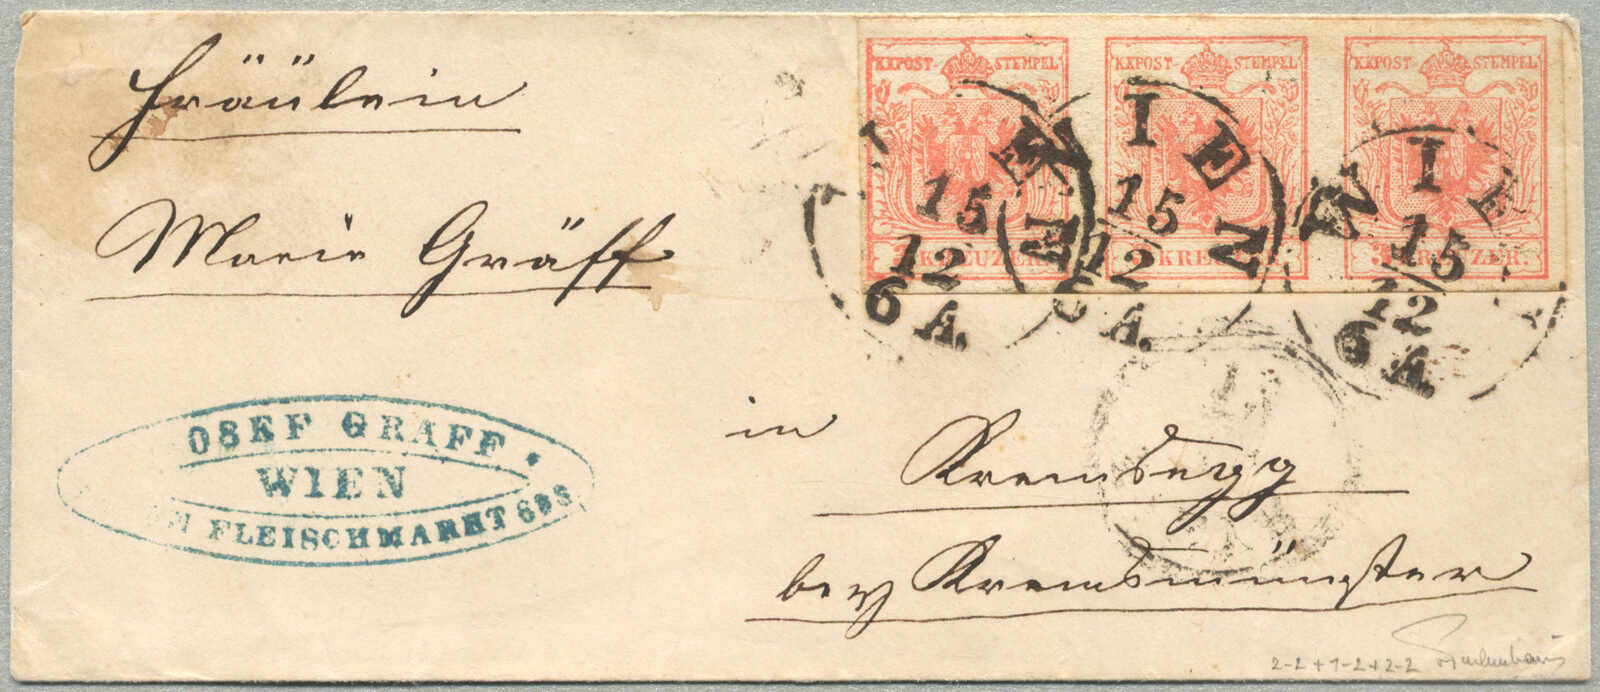 KKPOST-STEMPEL KKPOST-STEMPEL KKPOST-STEMPEL
3 KREUZER. 3 KREUZER. 3 KREUZER.
WIEN WIEN WIEN
15 15 15
12 12 12
6 A. 6 A. 6 A.
Fräülein
Marie Gräff
OSEF GRAFF.
WIEN
FLEISCHMARKT
in
Kremsegg
bey Kremsmünster
2-2+1-2+2-2